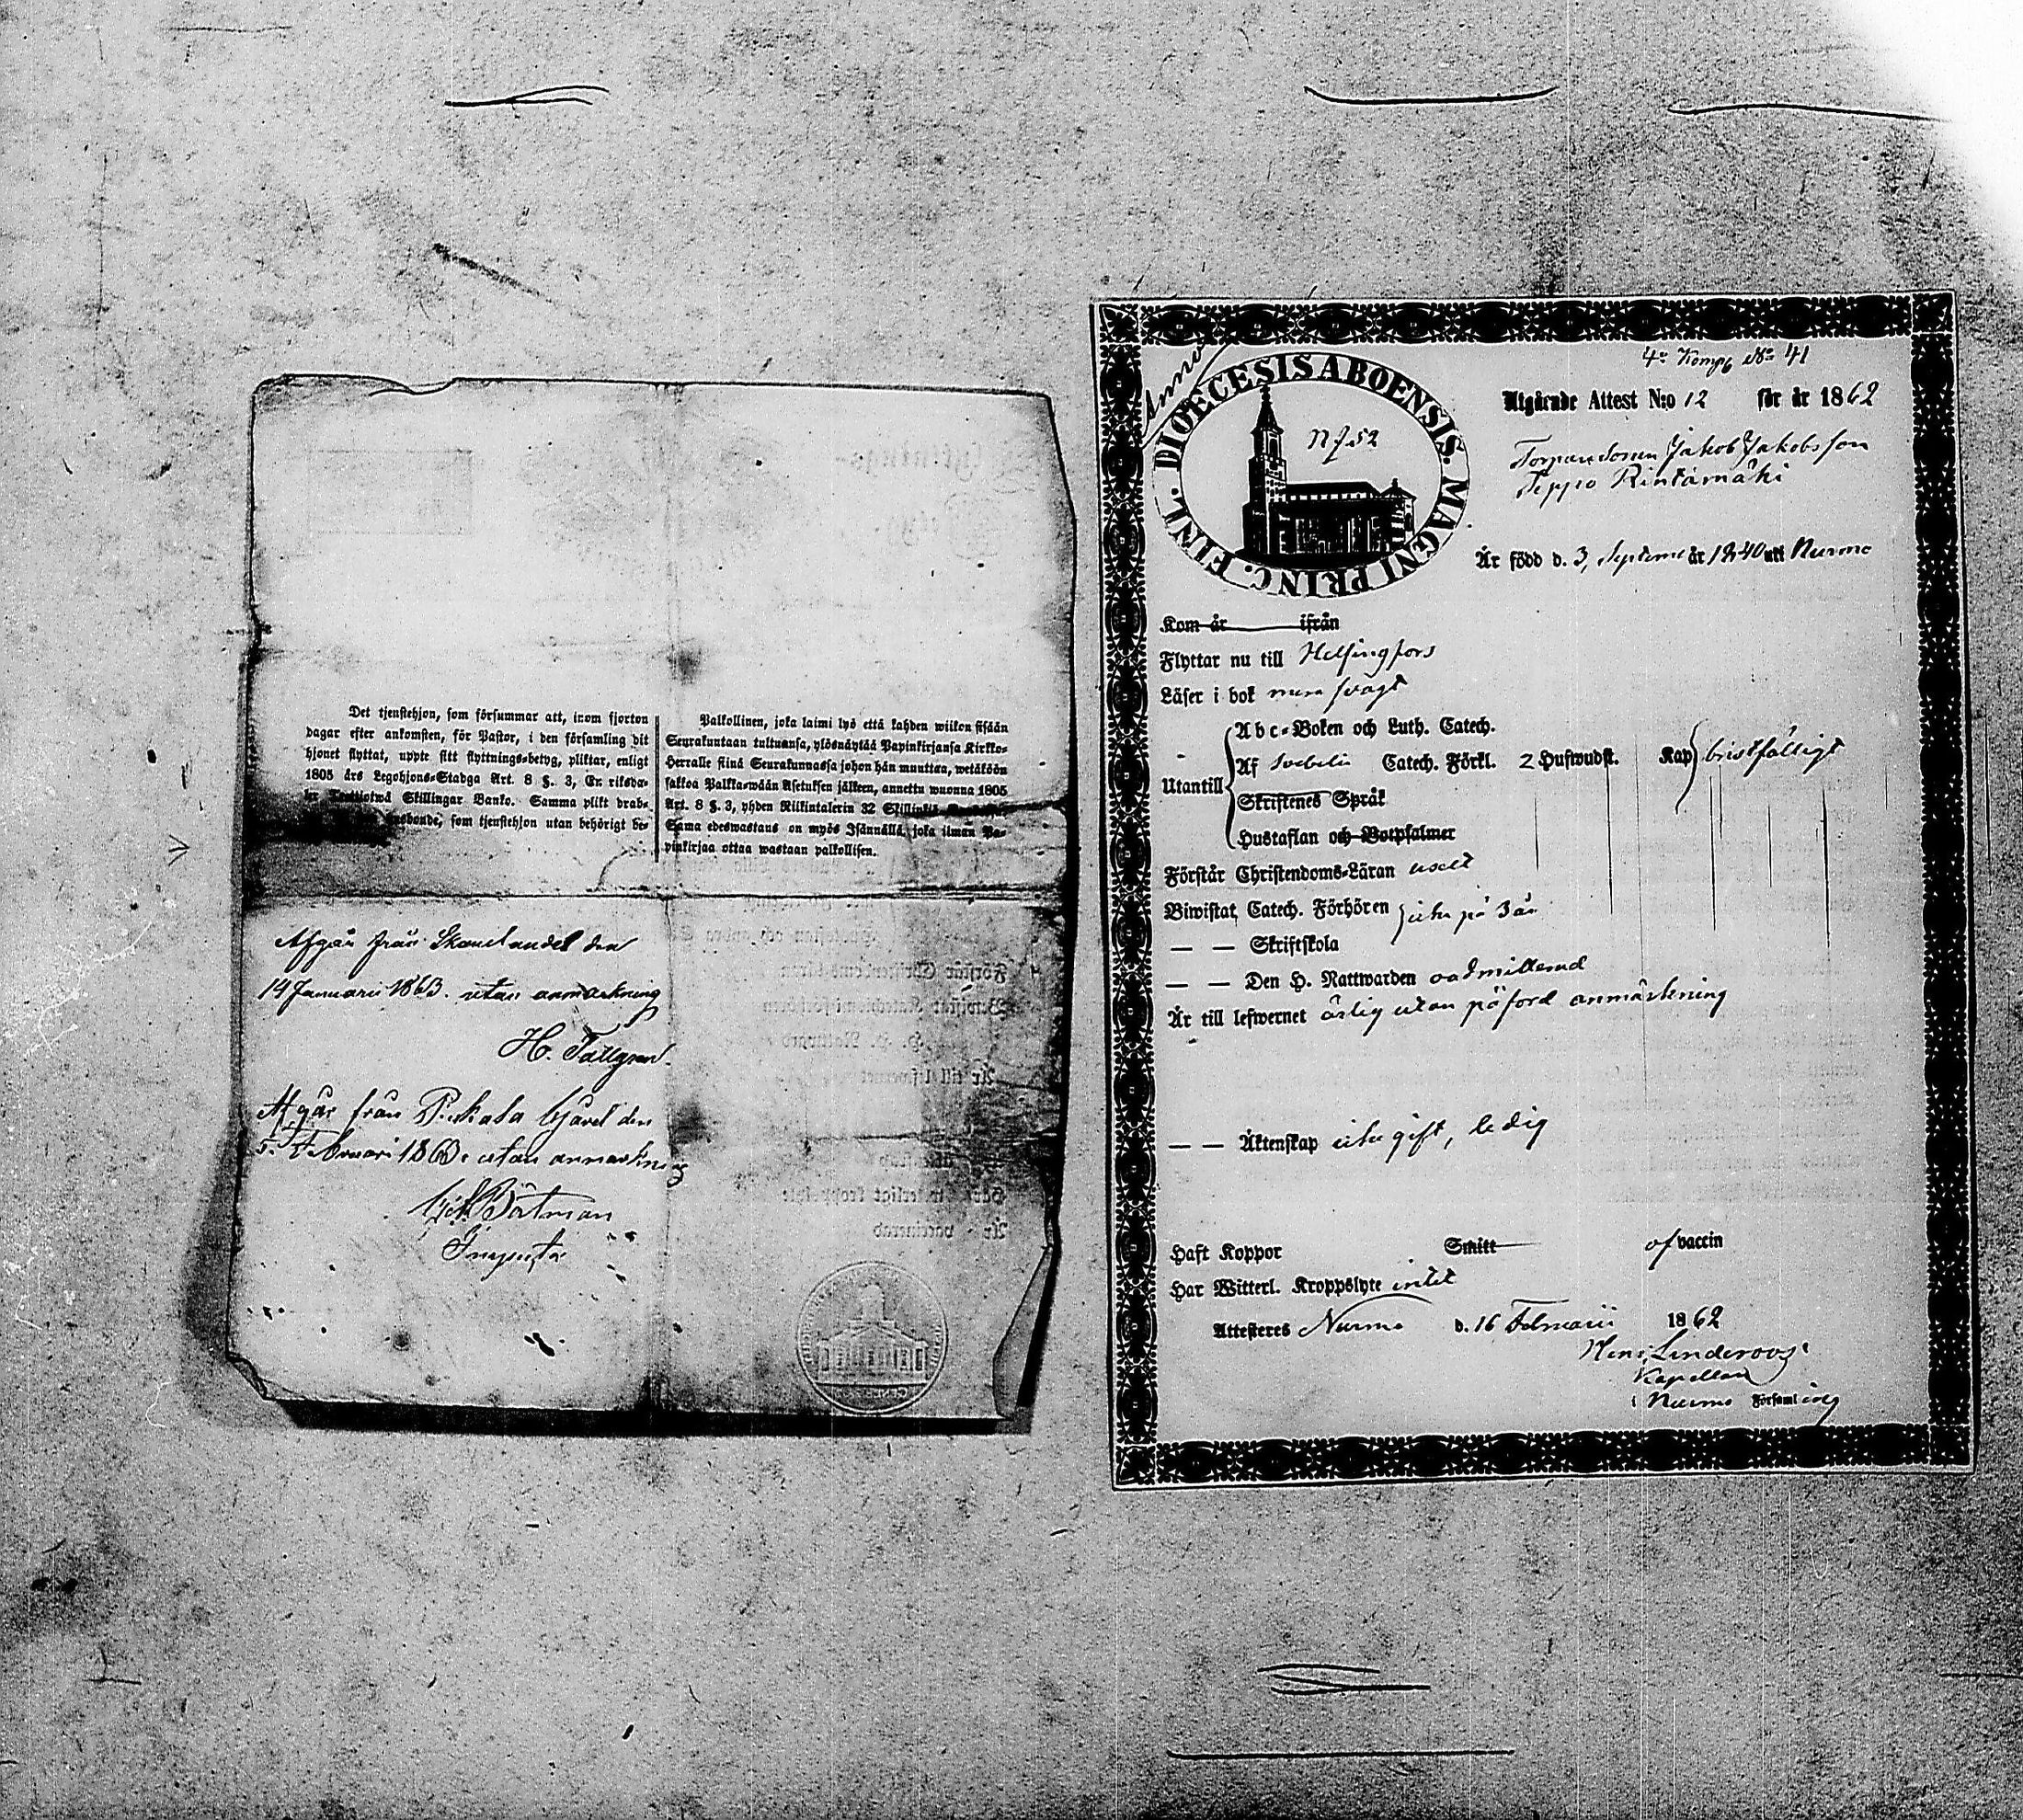 Det tjenstehjon, som försummar att, inom fjorton
dagar efter ankomsten, för Pastor, i den församling dit
hjonet flyttat, uppte sitt flyttnings-betyg, pliktar, enligt
1805 års Legohjons-Stadga Art. 8 §. 3, En riksda-
ler Trettiotwå Skillingar Banko. Samma plikt drab-
husbonde, som tjenstehjon utan behörigt be-
Palkollinen, joka laimi lyö että kahden wiikon sisään
Seurakuntaan tultuansa, ylösnäytää Papinkirjansa Kirkko-
Herralle siinä Seurakunnassa johon hän muuttaa, wetäköön
sakkoa Palkkawään Asetuksen jälkeen, annettu wuonna 1805
Art. 8 §. 3, yhden Riikintalerin 32 Skillinkiä
Sama edeswastaus on myös Isännällä, joka ilman Pa-
pinkirjaa ottaa wastaan palkollisen.
Afgår från Skanslandet den
14 Januarii 1863. utan anmärkning
H. Tallgren
Afgår från gård den
5. Februari 1863. utan anmärkning
Börtman
4e Komp No 41
DIOECESIS ABOENSIS. MAGNI PRINC. FINL.
N 52
Utgående Attest N:o 12 för år 1862
Torparesonen Jakob Jakobsson
Seppo Rintamäki
Är född d. 3, Septemb år 1840 uti Nurmo
Kom år ifrån
Flyttar nu till Helsingfors
Läser i bok svagt
Utantill
Abc-Boken och Luth. Catech.
Af Svebelii Catech. Förkl. 2 Hufwudst. Kap bristfälligt
Skriftenes Språk
Hustaflan och Botpsalmer
Förstår Christendoms-Läran uselt
Biwistat Catech. Förhören icke på 3 år
— — Skriftskola
— — Den H. Nattwarden oadmitterad
Är till lefwernet ärlig utan påförd anmärkning
— — Äktenskap icke gift, ledig
Haft Koppor Smitt af vaccin
Har Witterl. Kroppslyte intet
Attesteres Nurmo d. 16 Februarii 1862
Henr. Linderoos
Kapellan
i Nurmo Församling